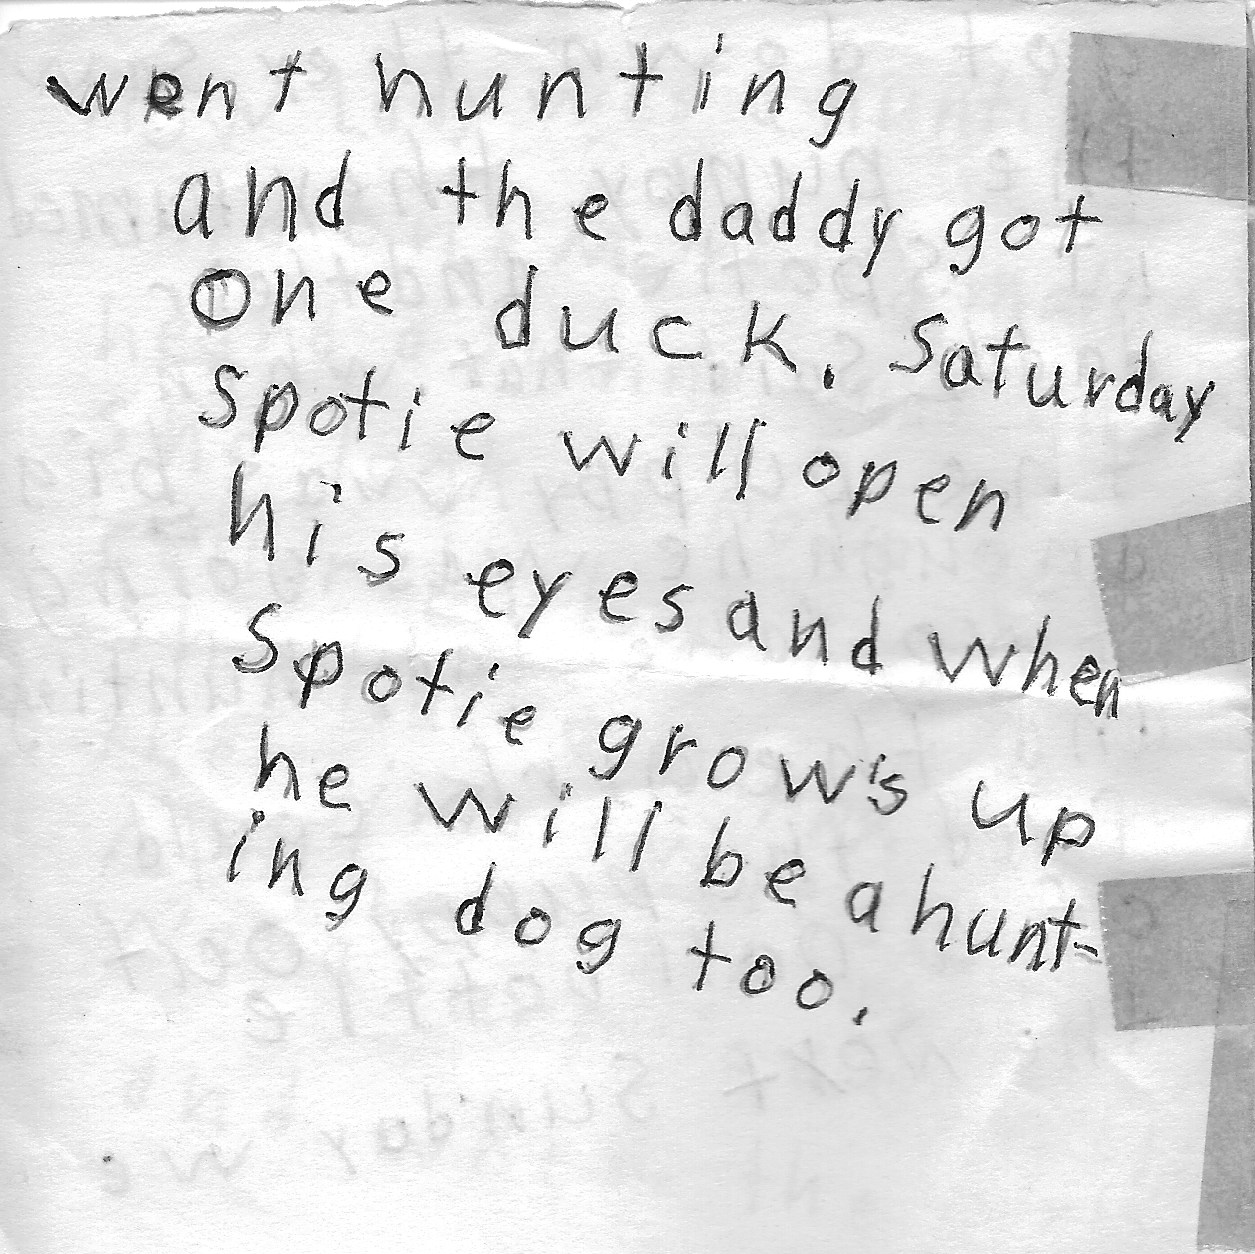 went hunting
and the daddy got
one duck. Saturday
Spotie will open
his eyes and when
Spotie grow's up
he will be a hunt-
ing dog too.